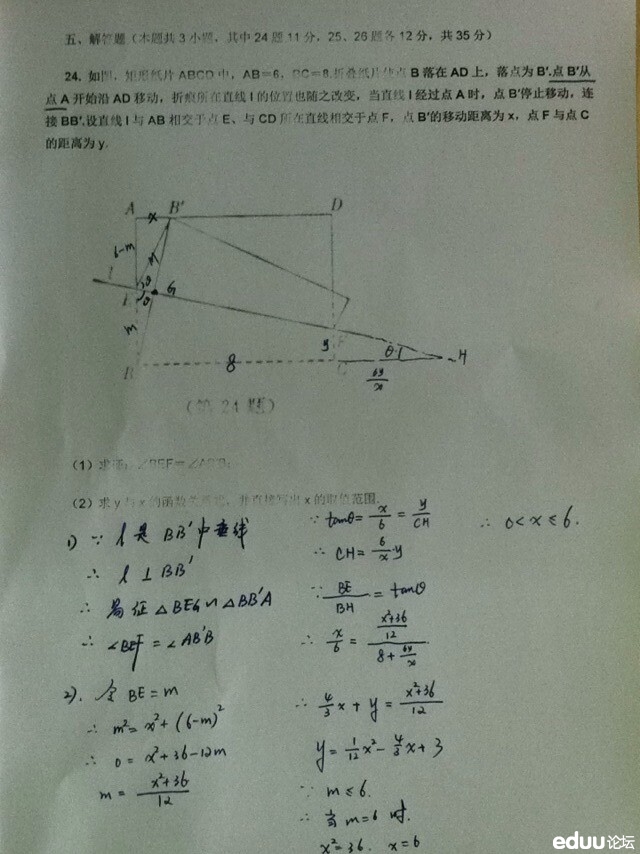 五、解答题（本题共3小题，其中24题11分，25、26题各12分，共35分）
24. 如图，矩形纸片ABCD中，AB=6，BC=8.折叠纸片使点B落在AD上，落点为B′.点B′从
点A开始沿AD移动，折痕所在直线l的位置也随之改变，当直线l经过点A时，点B′停止移动，连
接BB′.设直线l与AB相交于点E、与CD所在直线相交于点F，点B′的移动距离为x，点F与点C
的距离为y.
A x B′ D
6-m m
l E θ θ G
m y F θ H
B 8 C 6y/x
（第24题）
（1）求证：∠BEF=∠AB′B；
（2）求y与x的函数关系式，并直接写出x的取值范围.
1) ∵ l是BB′中垂线
∴ l⊥BB′
∴ 易证△BEG∽△BB′A
∴ ∠BEF=∠AB′B
2). 令BE=m
∴ m²=x²+(6-m)²
∴ 0=x²+36-12m
m=(x²+36)/12
∵ tanθ=x/6=y/CH
∴ CH=6/x y
∵ BE/BH=tanθ
∴ x/6=((x²+36)/12)/(8+6y/x)
∴ 4/3 x+y=(x²+36)/12
y=1/12 x²-4/3 x+3
∵ m≤6.
∴ 当m=6时.
x²=36. x=6
∴ 0<x≤6.
eduu论坛